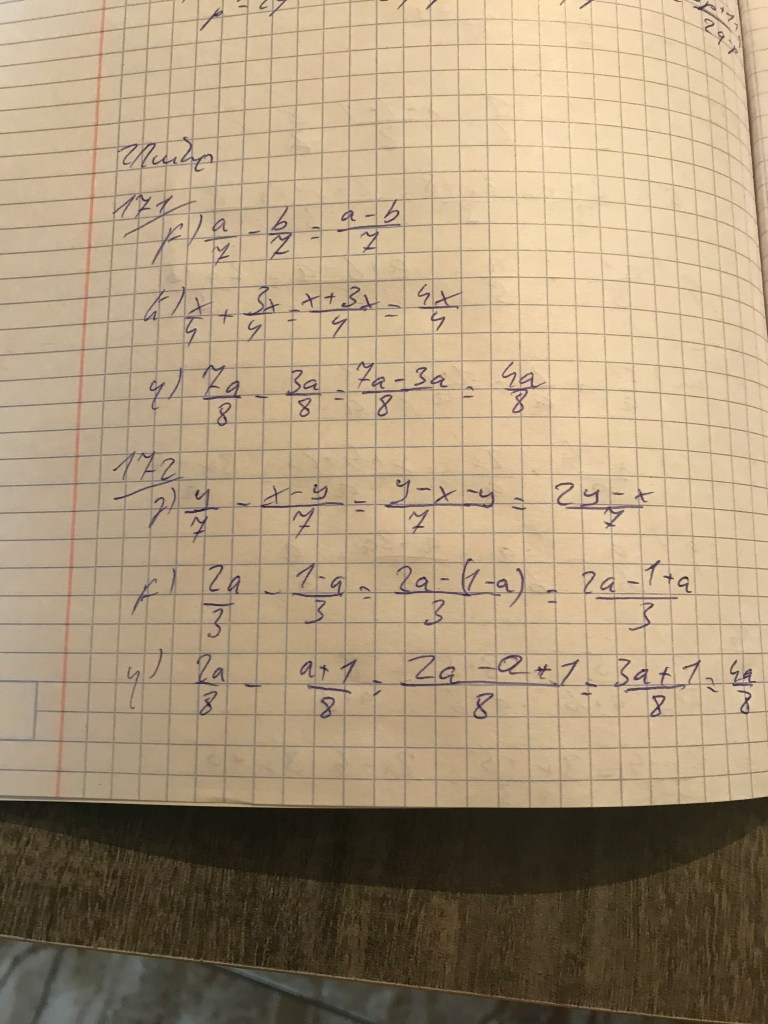 171
) a/7 - b/7 = a-b/7
x/4 + 3x/4 = x+3x/4 = 4x/4
) 7a/8 - 3a/8 = 7a-3a/8 = 4a/8
172
) y/7 - x-y/7 = y-x-y/7 = 2y-x/7
) 2a/3 - 1-a/3 = 2a-(1-a)/3 = 2a-1+a/3
) 2a/8 - a+1/8 = 2a-a+1/8 = 3a+1/8 = 4a/8